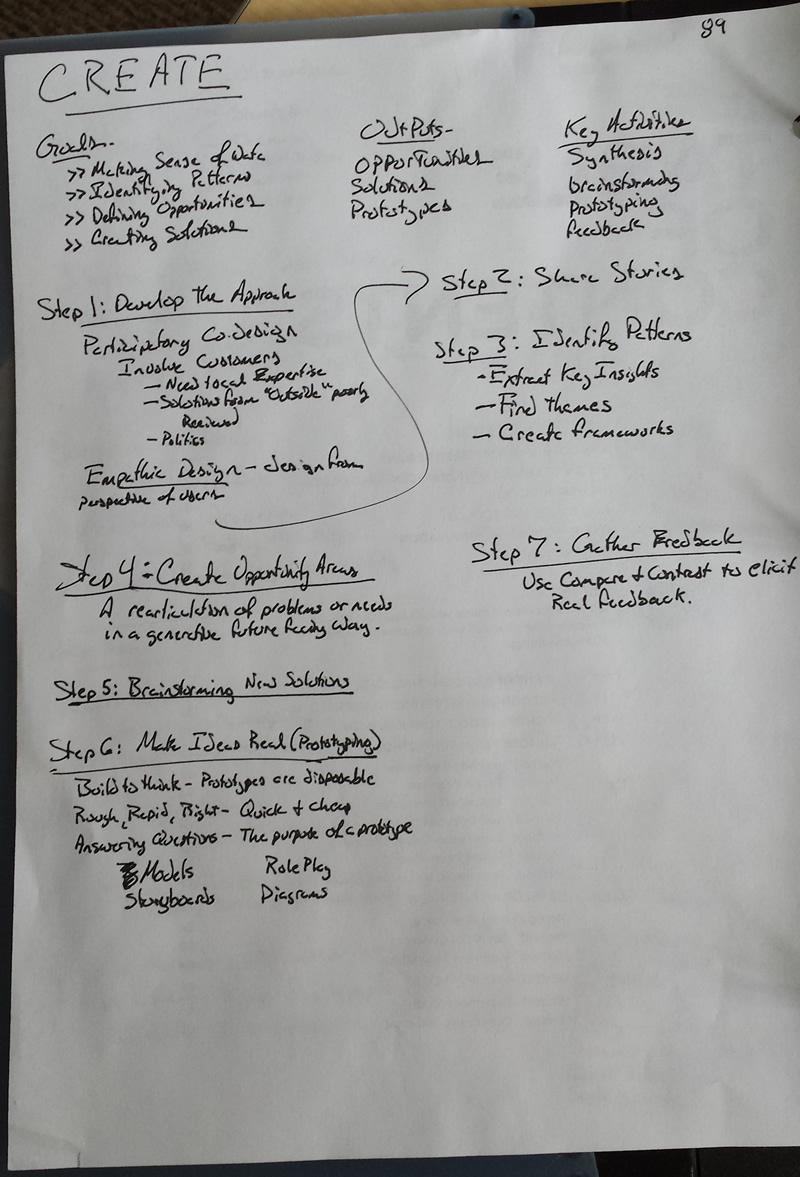 89
CREATE
Goals-
>> Making Sense of Data
>> Identifying Patterns
>> Defining Opportunities
>> Creating Solutions
OutPuts-
OPPORTUNITIES
Solutions
Prototypes
Key Activities
Synthesis
brainstorming
Prototyping
feedback
Step 1: Develop The Approach
Participatory Co-design
Involve Customers
- Need local Expertise
- Solutions from "Outside" poorly
Received
- Politics
Empathic Design - design from
perspective of users
Step 2: Share Stories
Step 3: Identify Patterns
- Extract Key Insights
- Find themes
- Create frameworks
Step 4: Create Opportunity Areas
A rearticulation of problems or needs
in a generative future facing way.
Step 5: Brainstorming New Solutions
Step 6: Make Ideas Real (Prototyping)
Build to think - Prototypes are disposable
Rough, Rapid, Right - Quick + cheap
Answering Questions - The purpose of a prototype
Models Role Play
Storyboards Diagrams
Step 7: Gather Feedback
Use Compare + Contrast to elicit
Real feedback.